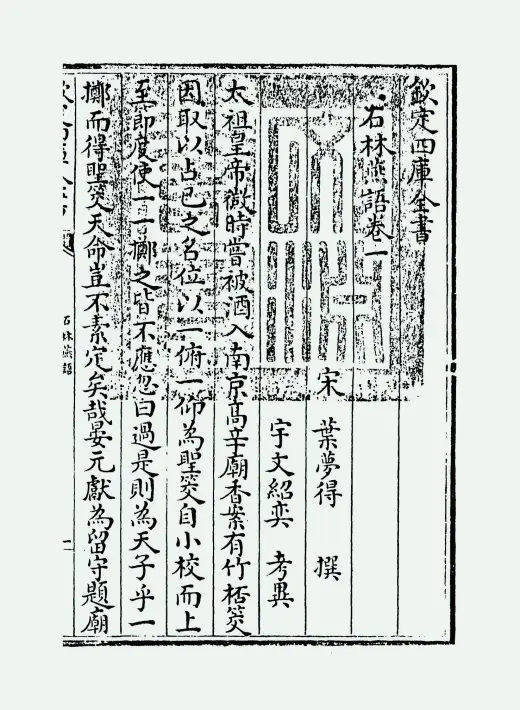 欽定四庫全書
石林燕語卷一
宋 葉夢得 撰
宇文紹奕 考異
太祖皇帝微時嘗被酒入南京高辛廟香案有竹桮筊
因取以占已之名位以一俯一仰為聖筊自小校而上
至節度使一一擲之皆不應忽曰過是則為天子乎一
擲而得聖筊天命豈不素定矣哉晏元獻為留守題廟
石林燕語